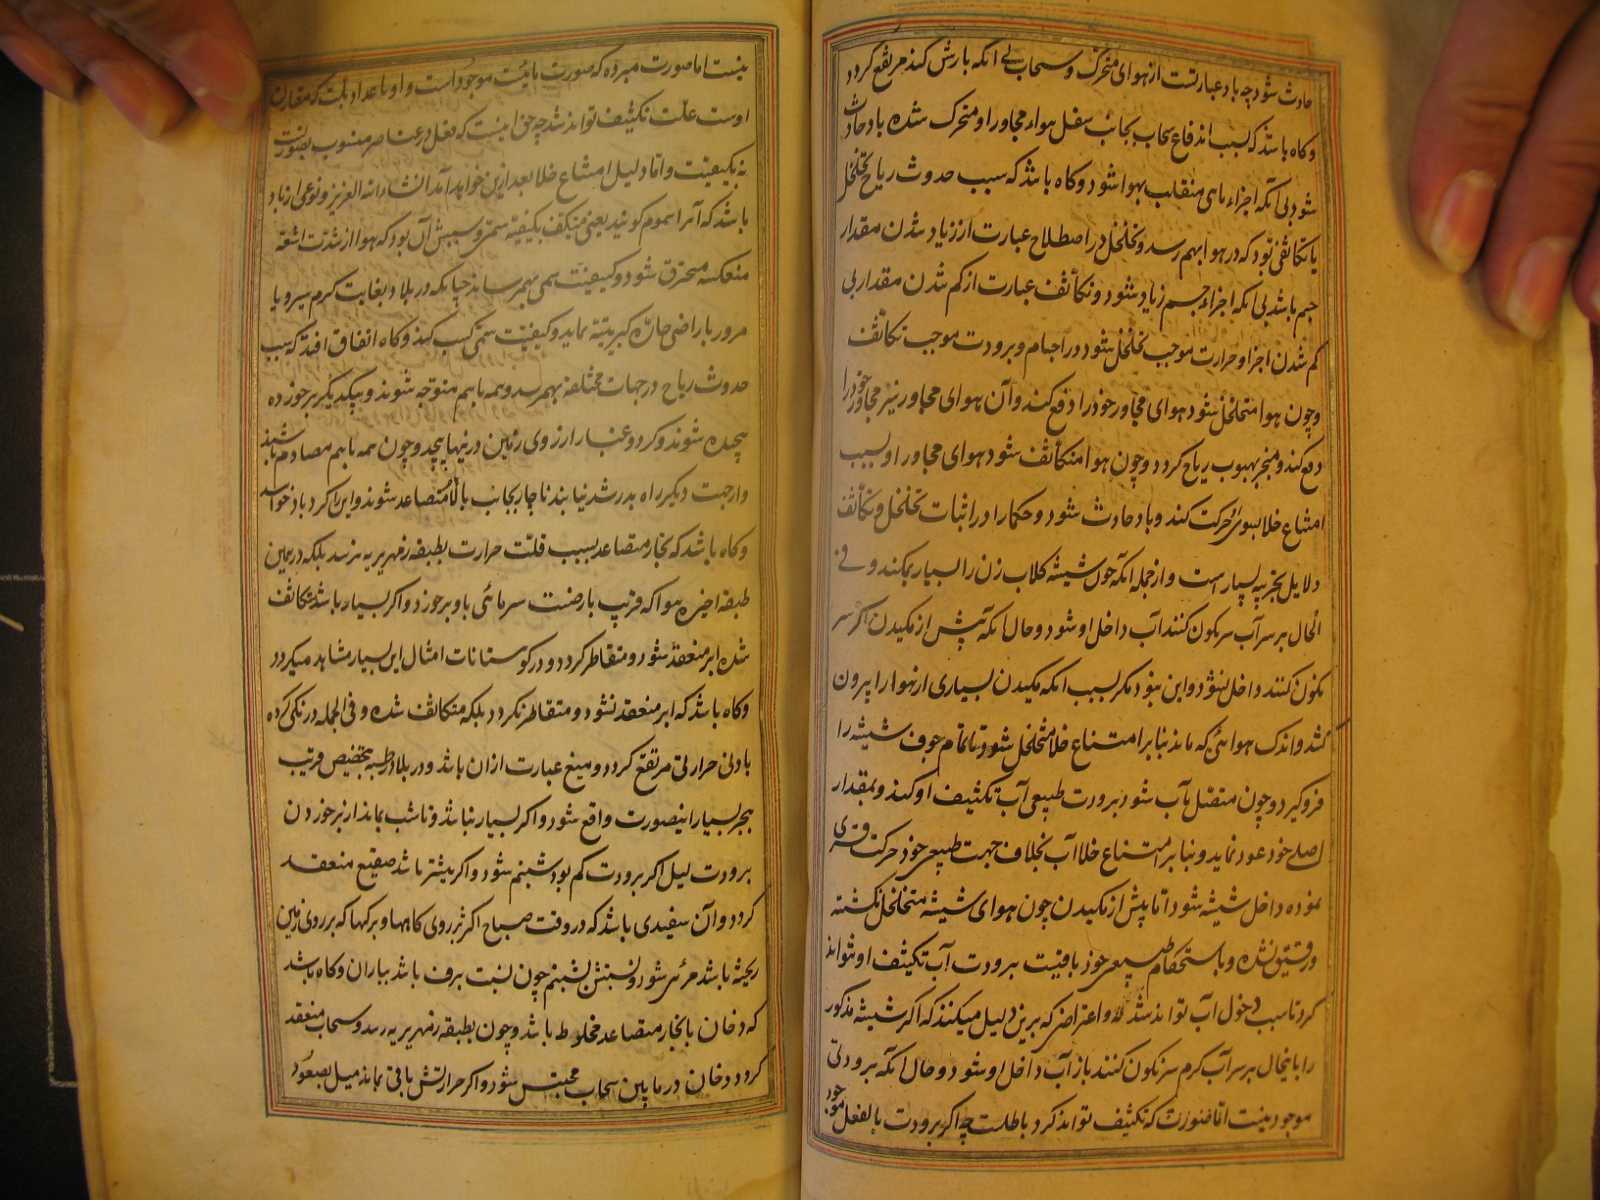 حادث شود چه باد عبارتست از هوای متحرک و سحاب بی آنکه بارش کند مرتفع گردد
و گاه باشد که بسبب اندفاع سحاب بجانب سفل هواء مجاور او متحرک شده باد حادث
شود بی آنکه اجزاء ماهی منقلب بهوا شود و گاه باشد که سبب حدوث ریاح تخلخل
یا تکاثفی بود که در هوا بهم رسد و تخلخل در اصطلاح عبارت از زیاد شدن مقدار
جسم باشد بی آنکه اجزاء جسم زیاد شود و تکاثف عبارت از کم شدن مقدار بی
کم شدن اجزا و حرارت موجب تخلخل شود در اجسام و برودت موجب تکاثف
و چون هوا متخلخل شود هوای مجاور خود را دفع کند و آن هوای مجاور نیز مجاور خود را
دفع کند و منجر بهبوب ریاح گردد و چون هوا متکاثف شود هوای مجاور او بسبب
امتناع خلا بسوی حرکت کند و باد حادث شود و حکما را در اثبات تخلخل و تکاثف
دلایل تجربیه بسیار است و از جمله آنکه چون شیشه گلاب زن را بسیار بمکند و فی
الحال بر سر آب سرنگون کنند آب داخل او شود و حال آنکه پیش از مکیدن اگر سر
نکون کنند داخل نشود و این نبود مگر بسبب آنکه مکیدن بسیاری از هوا را بیرون
کشد و اندک هوائی که ماند بنا بر امتناع خلا متخلخل شود تا تمام جوف شیشه را
فرو گیرد و چون متصل بآب شود برودت طبیعی آب تکثیف او کند و بمقدار
اصلی خود عود نماید و بنا بر امتناع خلا آب بخلاف جهت طبیعی خود حرکت قسری
نموده داخل شیشه شود اما پیش از مکیدن چون هوای شیشه متخلخل نگشته
و رقیق نشده و باستحکام طبیعی خود باقیست برودت آب تکثیف او نتواند
کرد تا سبب دخول آب تواند شد و اعتراضی که برین دلیل میکنند که اگر شیشه مذکور
را با نحال بر سر آب گرم سرنگون کنند باز آب داخل او شود و حال آنکه برودتی
موجود نیست تا تصورت که تکثیف تواند کرد باطلست چه اگر برودت بالفعل موجود
نیست اما صورت مبرده که صورت مائیت موجود است و او با عداد که مقارن
اوست علت تکثیف تواند شد چه حق اینست که فعل در عناصر منسوب بصورتست
نه بکیفیت و اما دلیل امتناع خلا بعد ازین خواهد آمد انشاء الله العزیز و نوعی از باد
باشد که آنرا سموم گویند یعنی متکیف بکیفیة سمیّه و سببش آن بود که هوا از شدت اشعه
منعکسه محترق شود و کیفیت سمی بهم رساند چنانکه در بلاد بغایت گرمسیر و یا
مرور باراضی حاره کبریتیه نماید و کیفیت سمی کسب کند و گاه اتفاق افتد که سبب
حدوث ریاح در جهات مختلفه بهم رسد و همه باهم متوجه شوند و بیکدیگر برخورده
پیچیده شوند و گرد و غبار از روی زمین در نها پیچد و چون همه باهم مصادم باشند
و از جهت دیگر راه بدر شد نیابند ناچار بجانب بالا متصاعد شوند و این را گرد باد خوانند
و گاه باشد که بخار متصاعد بسبب قلت حرارت بطبقه زمهریریه نرسد بلکه در همین
طبقه اخیره هوا که قریب بارضست سرمائی باو برخورد و اگر بسیار باشد متکاثف
شده ابر منعقد شود و متقاطر گردد و در کوهستانات امثال این بسیار مشاهد میگردد
و گاه باشد که ابر منعقد نشود و متقاطر نگردد بلکه متکاثف شده و فی الجمله درنگی کرده
بادنی حرارتی مرتفع گردد و میغ عبارت از آن باشد و در بلاد رطبه بتخصیص قریب
ببحر بسیار اینصورت واقع شود و اگر بسیار نباشد و تا شب بماند از برخوردن
برودت لیل اگر برودت کم بود شبنم شود و اگر بیشتر باشد صقیع منعقد
گردد و آن سفیدی باشد که در وقت صباح اکثر بر روی کاهها و برگها که بر روی زمین
ریخته باشد مرئی شود و نسبتش بشبنم چون نسبت برف باشد بباران و گاه باشد
که دخان با بخار متصاعد مخلوط باشد و چون بطبقه زمهریریه رسد و سحاب منعقد
گردد دخان در مابین سحاب محتبس شود و اگر حرارتش باقی بماند میل بصعود